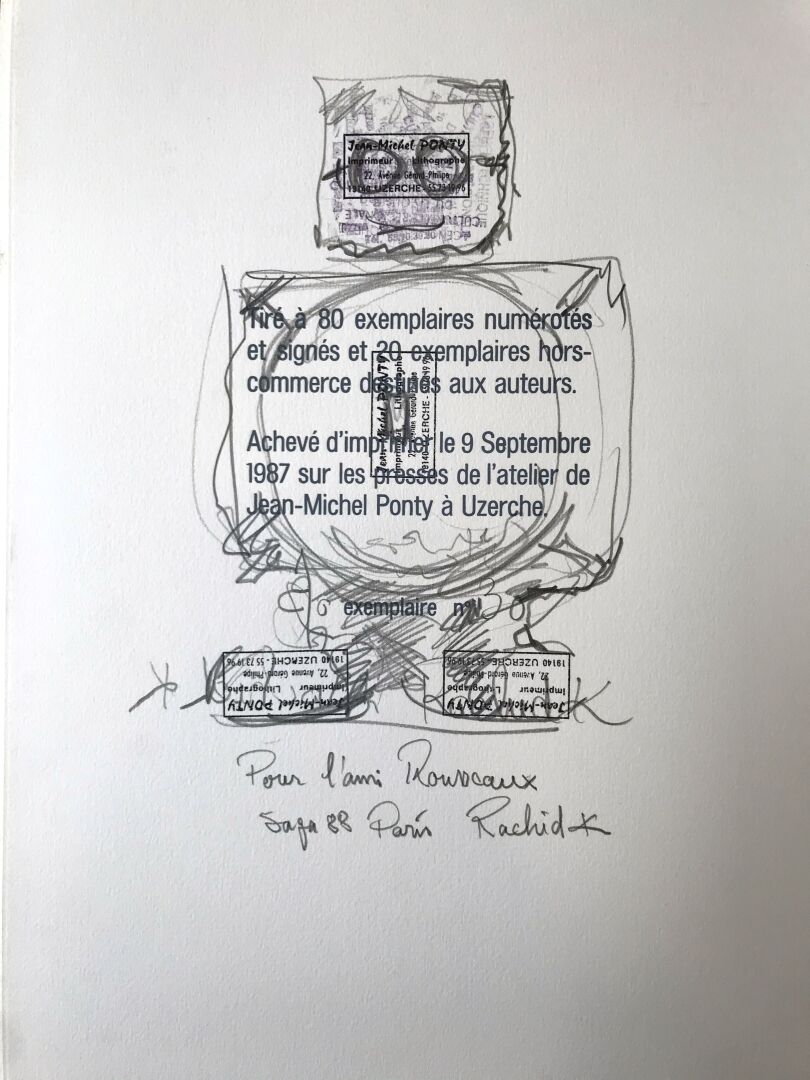 Jean-Michel PONTY
Imprimeur Lithographe
22, Avenue Gérard-Philipe
19140 UZERCHE - 55 73 19 96
Tiré à 80 exemplaires numérotés
et signés et 20 exemplaires hors-
commerce destinés aux auteurs.
Jean-Michel PONTY
Imprimeur Lithographe
22, Avenue Gérard-Philipe
19140 UZERCHE - 55 73 19 96
Achevé d'imprimer le 9 Septembre
1987 sur les presses de l'atelier de
Jean-Michel Ponty à Uzerche.
exemplaire n°
Jean-Michel PONTY
Imprimeur Lithographe
22, Avenue Gérard-Philipe
19140 UZERCHE - 55 73 19 96
Jean-Michel PONTY
Imprimeur Lithographe
22, Avenue Gérard-Philipe
19140 UZERCHE - 55 73 19 96
Pour l'ami
Saga 88 Paris Rachid K